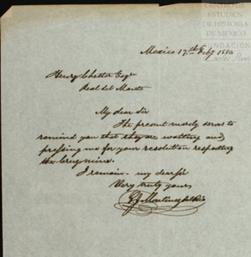 CENTRO DE
ESTUDIOS
DE HISTORIA
DE MEXICO
FUNDACIÓN
Mexico 17th Feby 1880
Henry Chester Esqre
Real del Monte
My dear Sir
The present merely serves to
remind you that they are waiting and
pressing me for your resolution respecting
the mine.
I remain my dear Sir
Very truly yours